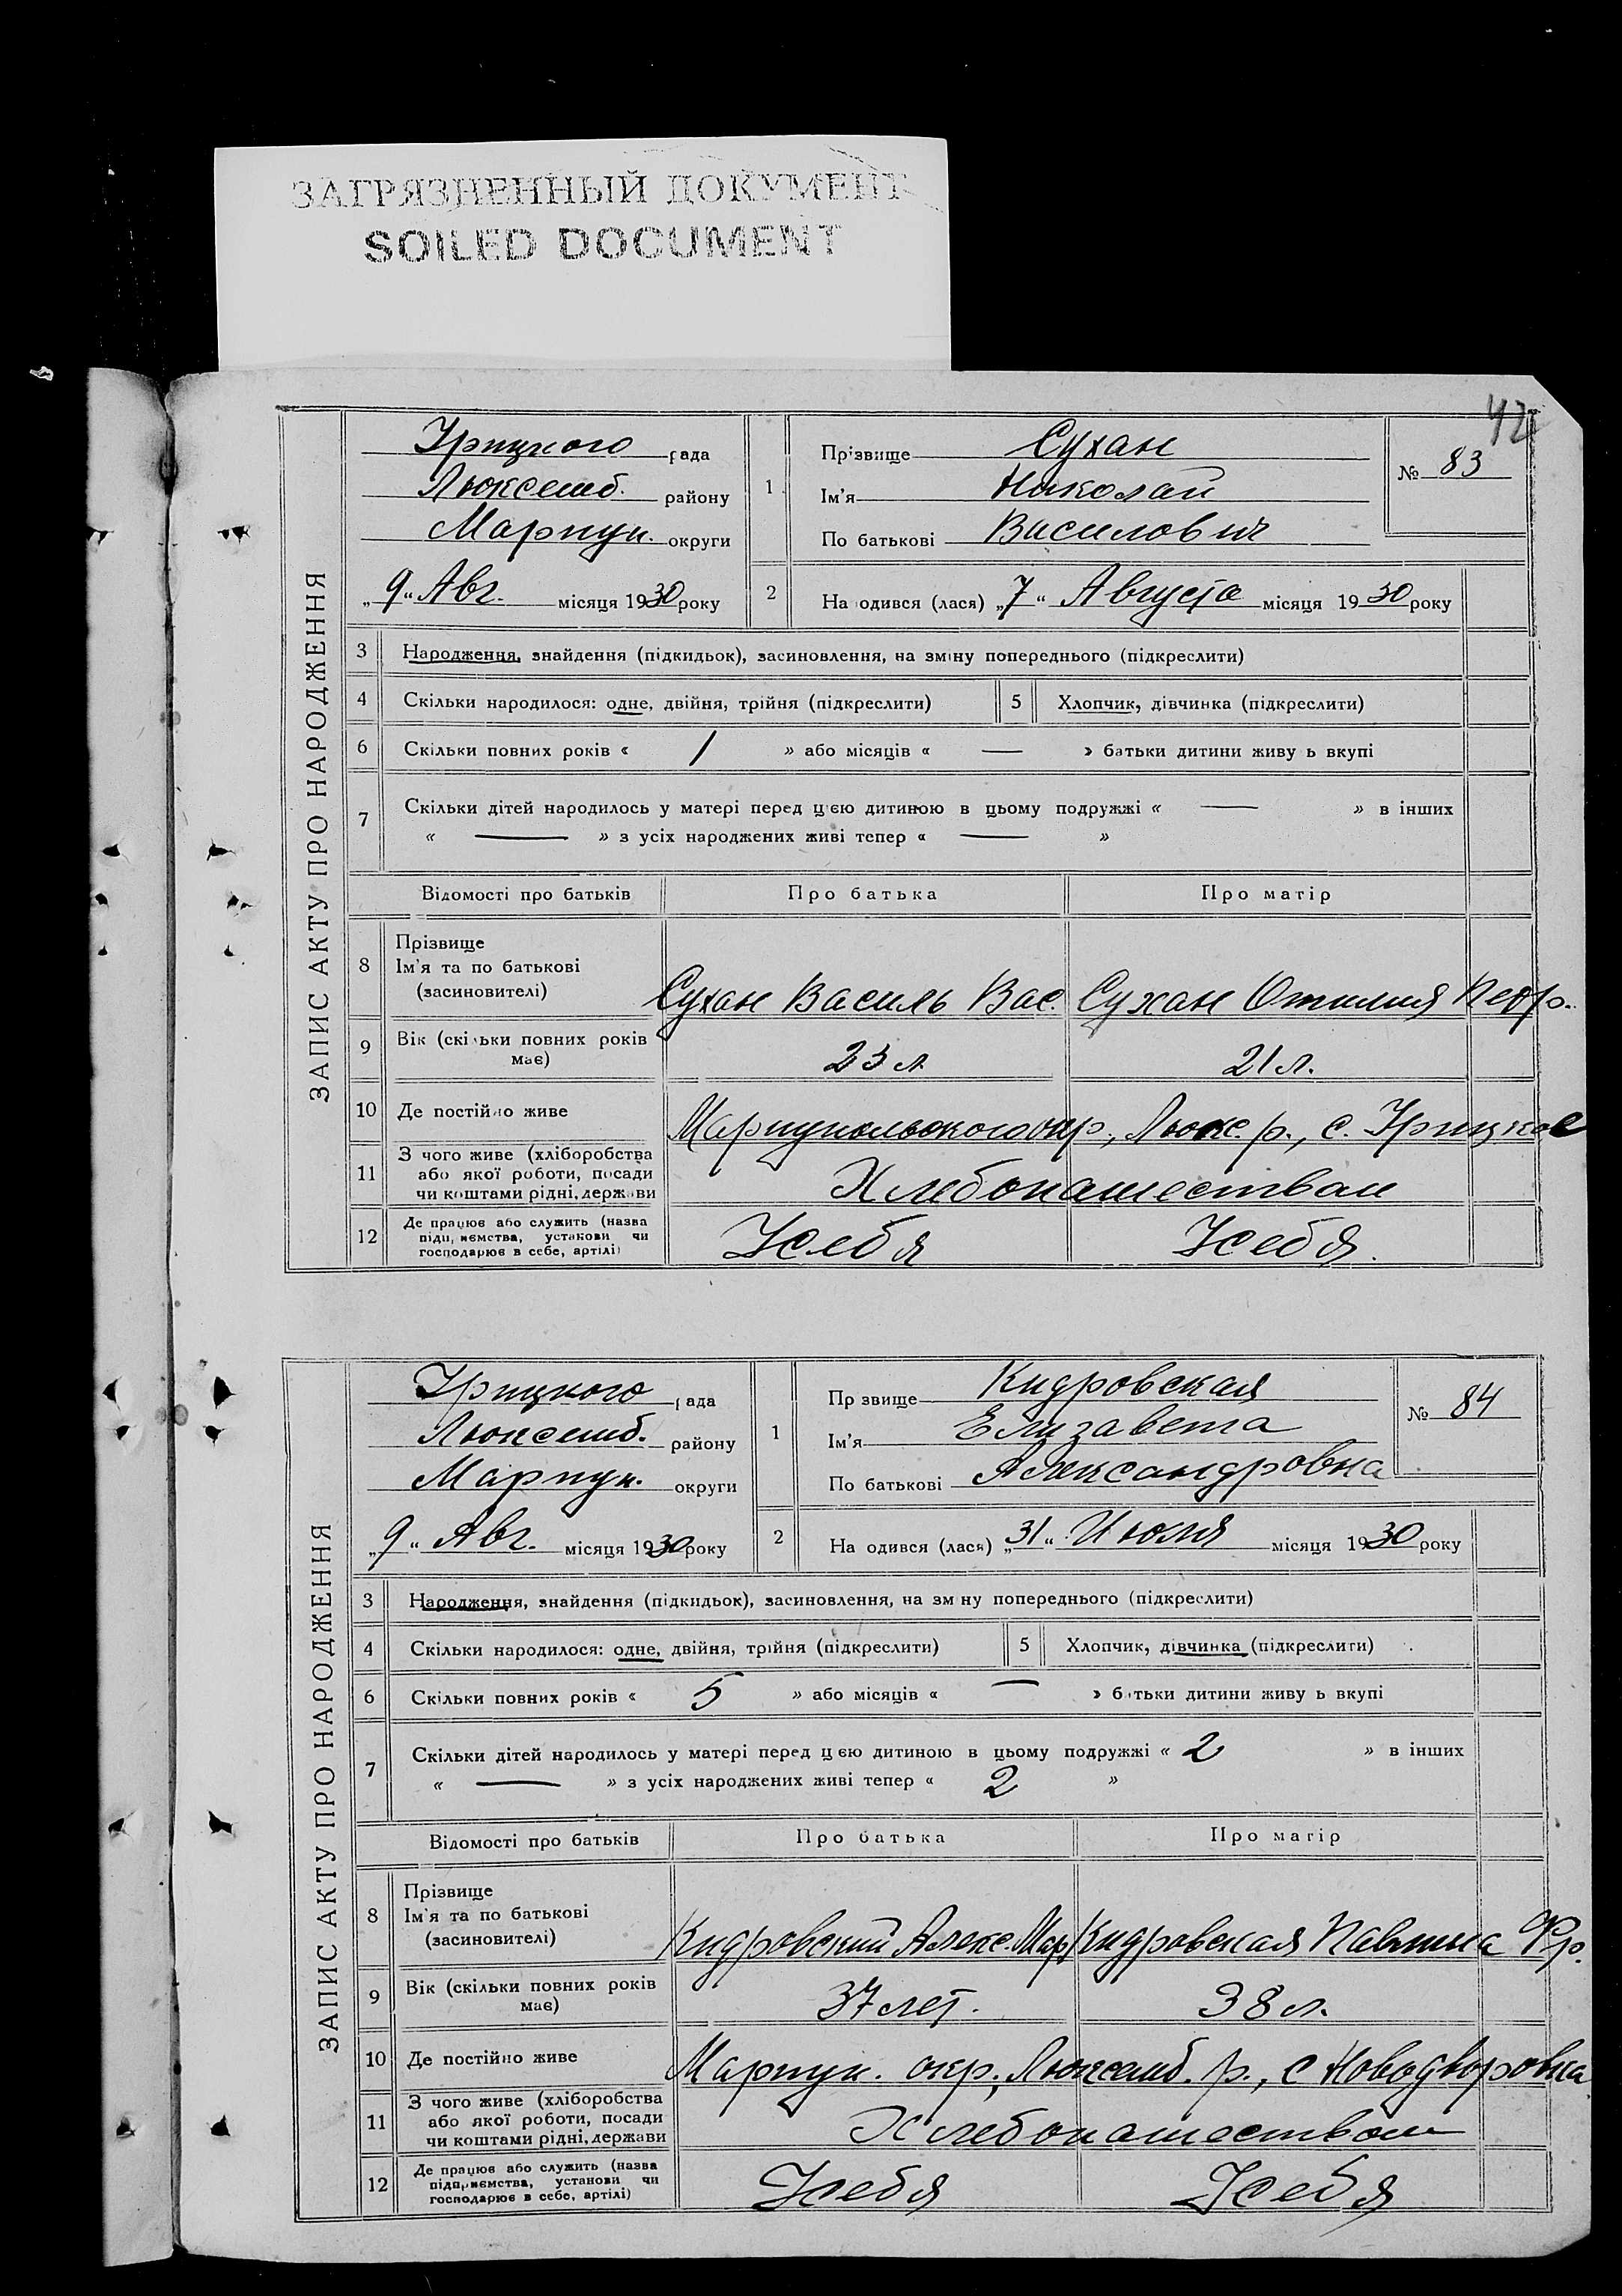 ЗАГРЯЗНЕННЫЙ ДОКУМЕНТ
SOILED DOCUMENT
42
ЗАПИС АКТУ ПРО НАРОДЖЕННЯ
Урицкого рада
Люксемб. району
Мариуп. округи
„9“ Авг. місяця 1930 року
1
Прізвище Сухан
Ім'я Николай
По батькові Василович
№ 83
2 На одився (лася) „7“ Августа місяця 1930 року
3 Народження, знайдення (підкидьок), засиновлення, на зміну попереднього (підкреслити)
4 Скільки народилося: одне, двійня, трійня (підкреслити) 5 Хлопчик, дівчинка (підкреслити)
6 Скільки повних років « 1 » або місяців « — » батьки дитини живу ь вкупі
7 Скільки дітей народилось у матері перед цією дитиною в цьому подружжі « — » в інших
« — » з усіх народжених живі тепер « — »
Відомості про батьків Про батька Про матір
8 Прізвище
Ім'я та по батькові
(засновителі)
Сухан Василь Вас. Сухан Отилия Петро.
9 Вік (скільки повних років
має)
23 л. 21 л.
10 Де постійно живе Мариупольского окр., Люкс. р., с. Урицкое
11 З чого живе (хліборобства
або якої роботи, посади
чи коштами рідні, держави
Хлебопашеством
12 Де працює або служить (назва
підприємства, установи чи
господарює в себе, артілі)
У себя У себя.
ЗАПИС АКТУ ПРО НАРОДЖЕННЯ
Урицкого рада
Люксемб. району
Мариуп. округи
„9“ Авг. місяця 1930 року
1
Пр звище Кидровская
Ім'я Елизавета
По батькові Александровна
№ 84
2 На одився (лася) „31“ Июля місяця 1930 року
3 Народження, знайдення (підкидьок), засиновлення, на зм ну попереднього (підкреслити)
4 Скільки народилося: одне, двійня, трійня (підкреслити) 5 Хлопчик, дівчинка (підкреслити)
6 Скільки повних років « 5 » або місяців « — » батьки дитини живу ь вкупі
7 Скільки дітей народилось у матері перед цією дитиною в цьому подружжі « 2 » в інших
« — » з усіх народжених живі тепер « 2 »
Відомості про батьків Про батька Про матір
8 Прізвище
Ім'я та по батькові
(засиновителі)
Кидровский Алекс. Мар. Кидровская Павлина Фр.
9 Вік (скільки повних років
має)
37 лет. 38 л.
10 Де постійно живе Мариуп. окр., Люксемб. р., с Новодворовка
11 З чого живе (хліборобства
або якої роботи, посади
чи коштами рідні, держави
Хлебопашеством
12 Де працює або служить (назва
підприємства, установи чи
господарює в себе, артілі)
У себя У себя